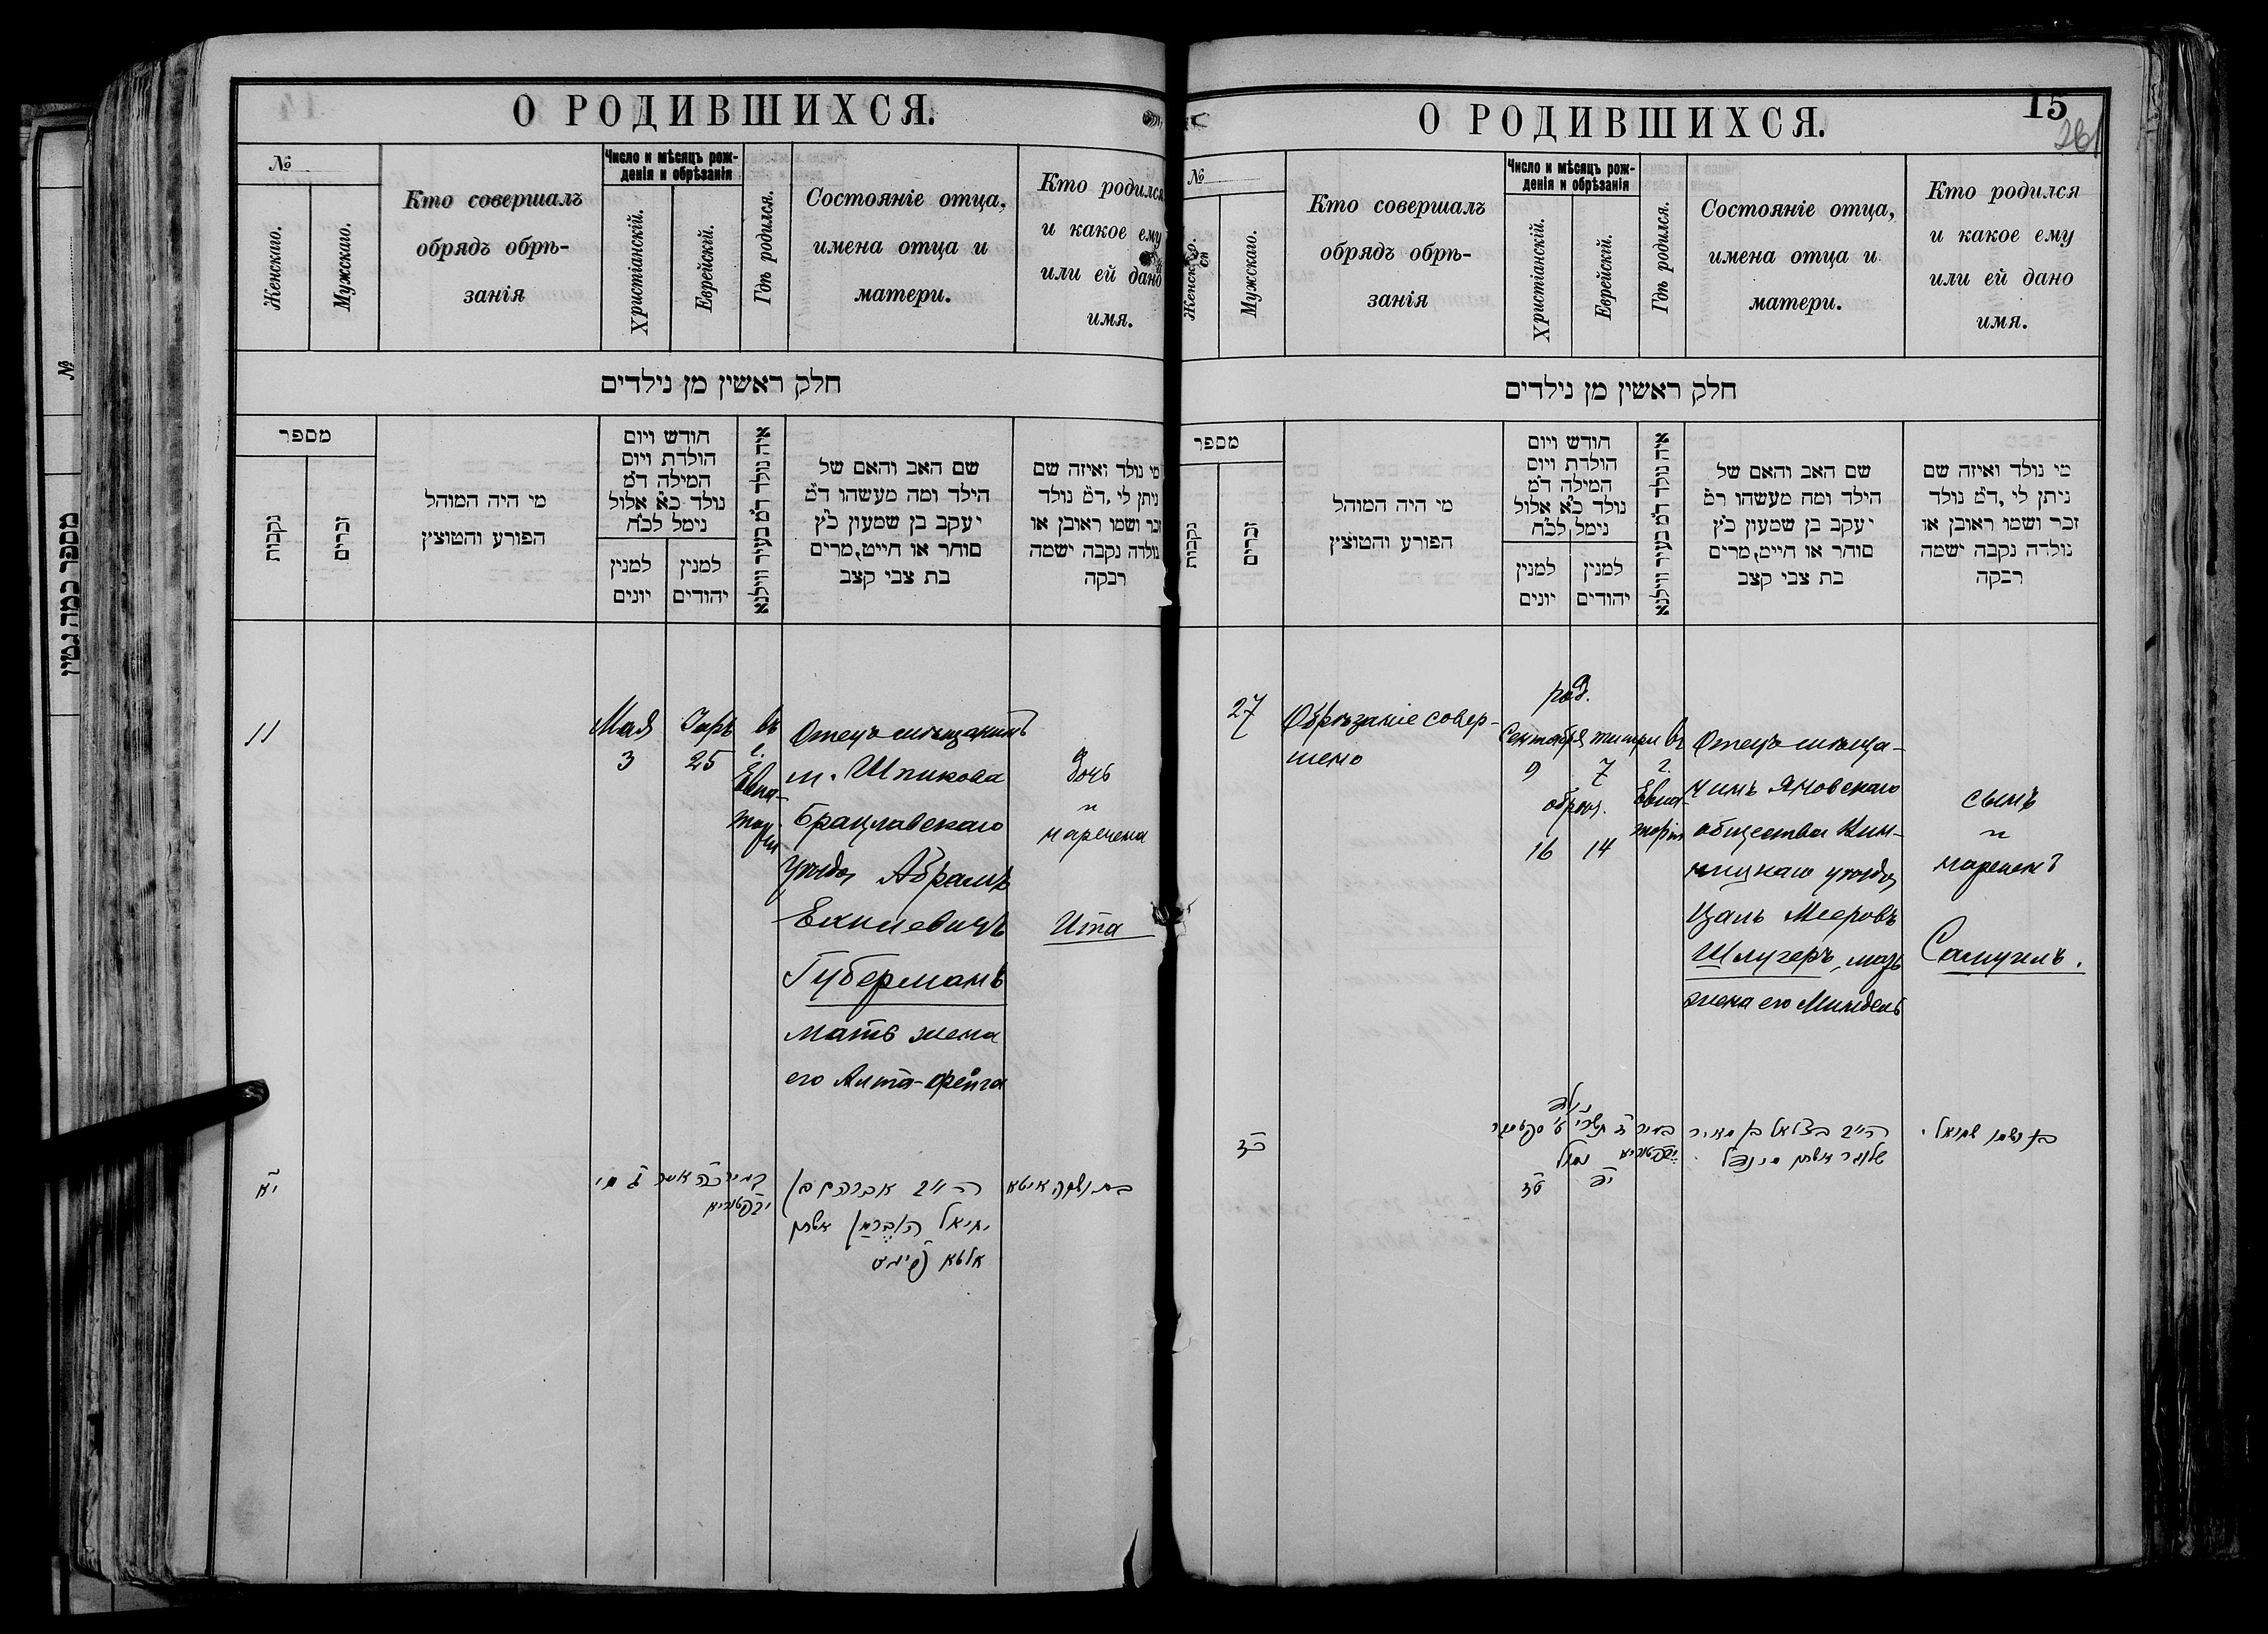 О РОДИВШИХСЯ.
№
Женскаго.
Мужскаго.
Кто совершалъ
обрядъ обрѣ-
занія
Число и мѣсяцъ рож-
денія и обрѣзанія
Христіанскій.
Еврейскій.
Гдѣ родился.
Состояніе отца,
имена отца и
матери.
Кто родился
и какое ему
или ей дано
имя.
חלק ראשין מן נילדים
מספר
נקבות
זכרים
מי היה המוהל
הפורע והטוצץ
חודש ויום
הולדת ויום
המילה ד״מ
נולד כ״א אלול
נימל לכ״ח
למנין
יונים
למנין
יהודים
איה נולד ד״מ בעיר ווילנא
שם האב והאם של
הילד ומה מעשהו ד״מ
יעקב בן שמעון כ״ץ
סוחר או חייט, מרים
בת צבי קצב
מי נולד ואיזה שם
ניתן לי, ד״מ נולד
זכר ושמו ראובן או
נולדה נקבה ישמה
רבקה
11
Мая
3
Іиръ
25
въ
г.
Евпа-
торіи
Отецъ мѣщанинъ
м. Шпикова
Брацлавскаго
уѣзда Абрамъ
Ехилевичъ
Губерманъ
мать жена
его Алта-Фейга
Дочь
и
наречена
Ита
יא
כה אייר
ג מי
הי״ג אברהם בן
יחיאל הוברמן אשתו
אלטא פייגע
בת ושמה איטא
О РОДИВШИХСЯ.
15
261
№
Женскаго.
Мужскаго.
Кто совершалъ
обрядъ обрѣ-
занія
Число и мѣсяцъ рож-
денія и обрѣзанія
Христіанскій.
Еврейскій.
Гдѣ родился.
Состояніе отца,
имена отца и
матери.
Кто родился
и какое ему
или ей дано
имя.
חלק ראשין מן נילדים
מספר
נקבות
זכרים
מי היה המוהל
הפורע והטוצץ
חודש ויום
הולדת ויום
המילה ד״מ
נולד כ״א אלול
נימל לכ״ח
למנין
יונים
למנין
יהודים
איה נולד ד״מ בעיר ווילנא
שם האב והאם של
הילד ומה מעשהו ד״מ
יעקב בן שמעון כ״ץ
סוחר או חייט, מרים
בת צבי קצב
מי נולד ואיזה שם
ניתן לי, ד״מ נולד
זכר ושמו ראובן או
נולדה נקבה ישמה
רבקה
27
Обрѣзаніе совер-
шено
род.
Сентября тишри
9 7
обрѣз.
16 14
въ
г.
Евпа-
торіи
Отецъ мѣща-
нинъ Яновскаго
общества Вин-
ницкаго уѣзда
Цаль Мееровъ
Шлугеръ, мать
жена его Миндель
сынъ
и
нареченъ
Самуилъ.
כז
נולד
ז תשרי ט סקטעבר
נמול
יד
טז
הי״ג בצלאל בן מאיר
שלוגר אשתו מינדל
בן ושמו שמואל.